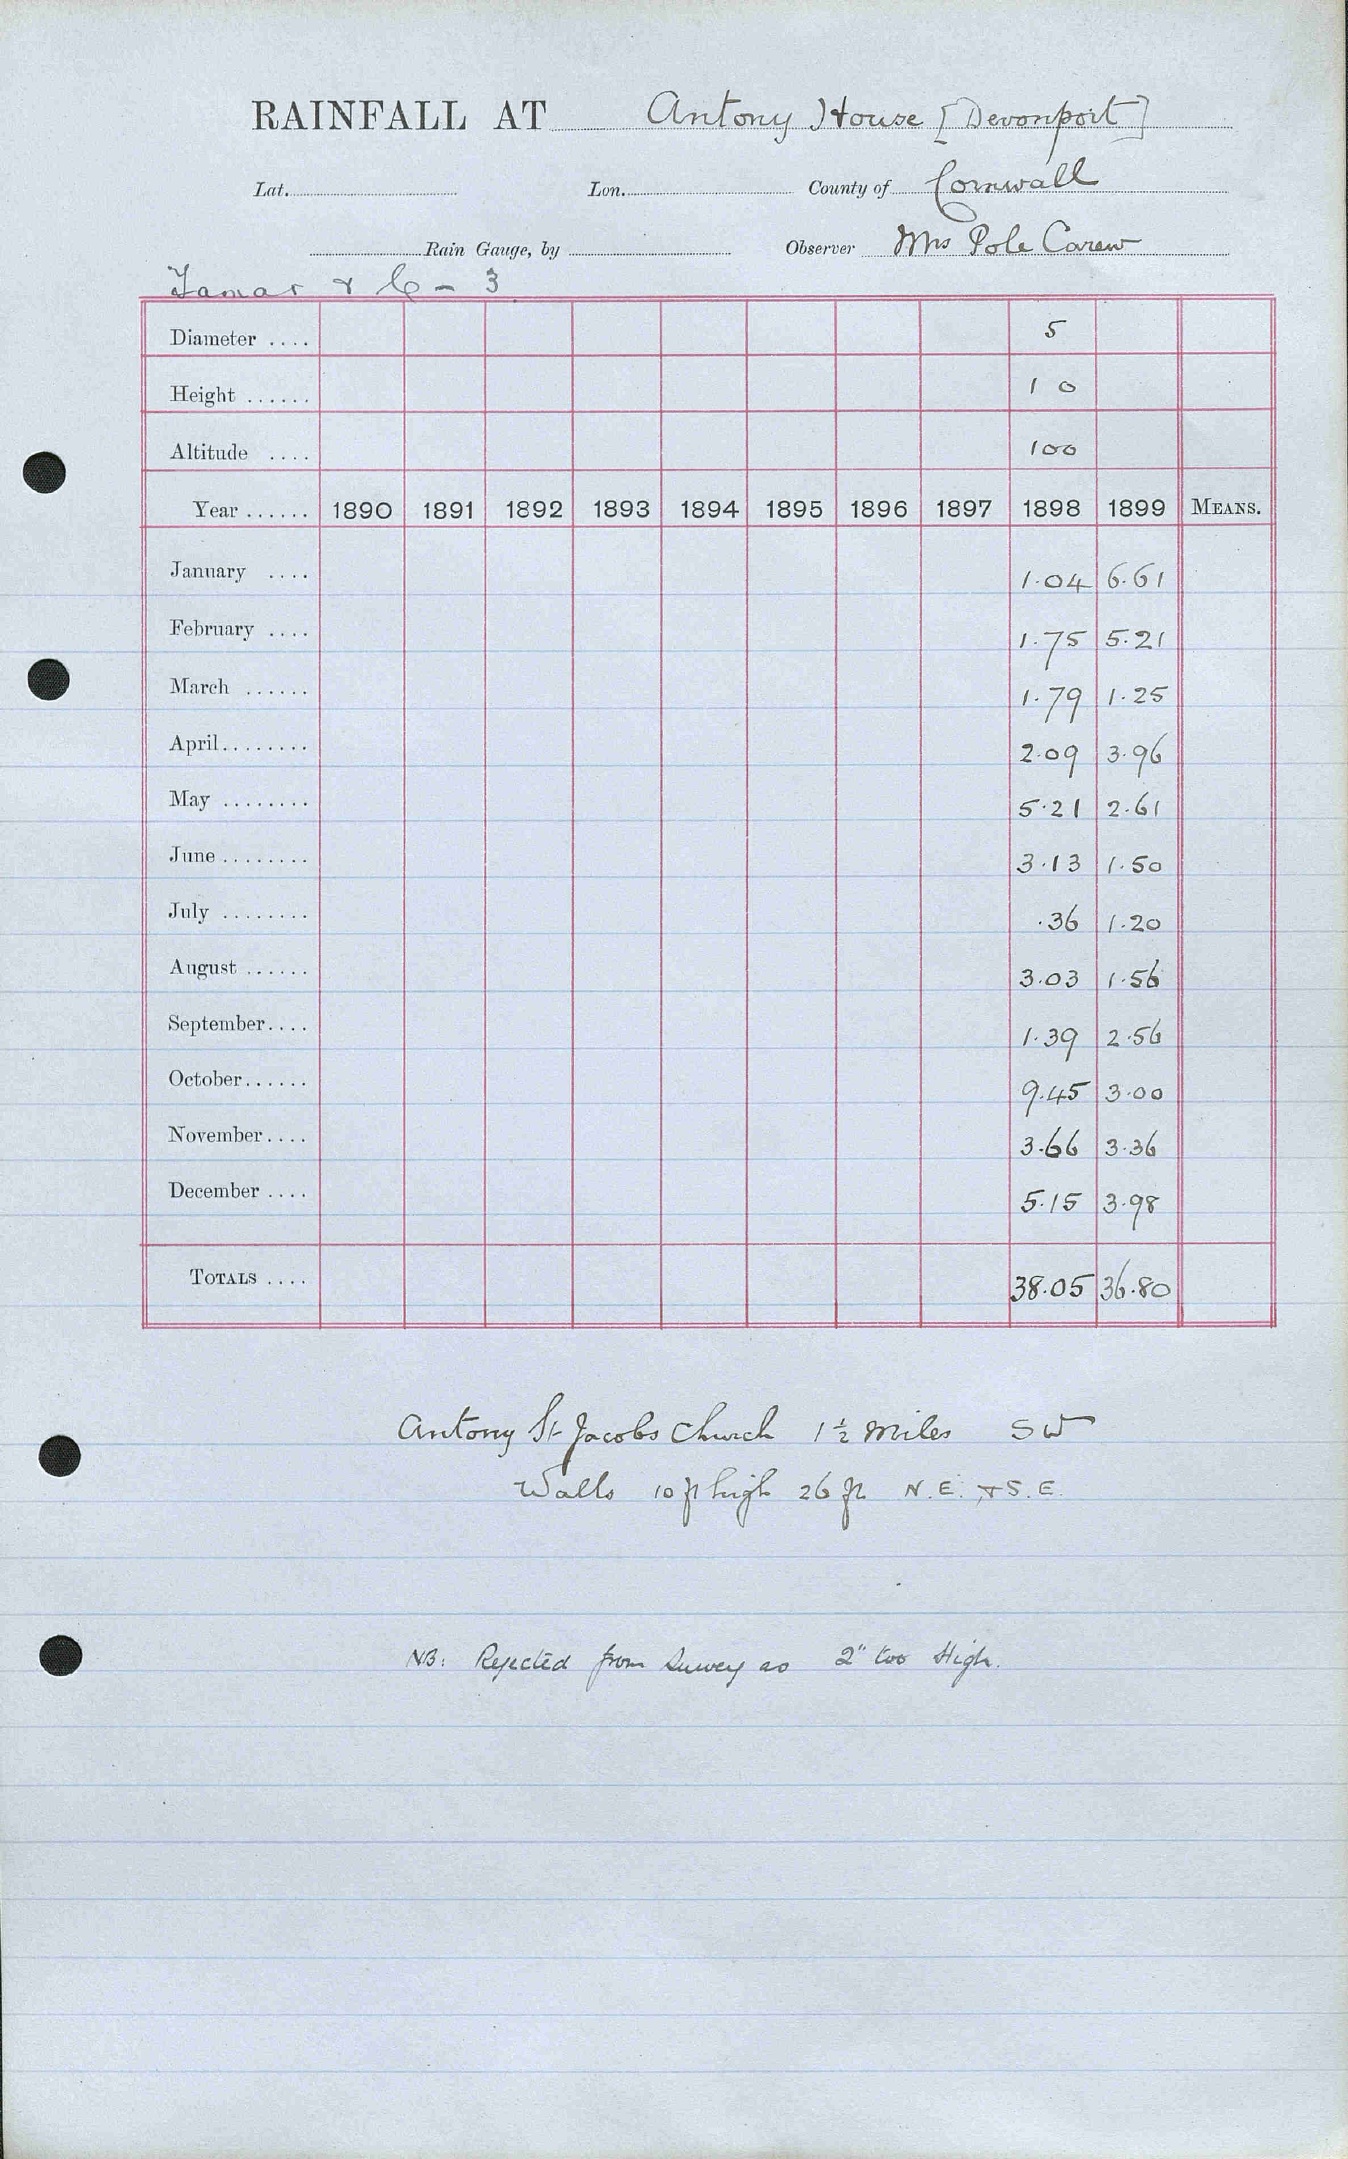 RAINFALL AT Antony House [Devonport]
Lat. Lon. County of Cornwall
Rain Gauge, by Observer Mrs Pole Carew
Tamar & C - 3
Diameter .... 5
Height ...... 1 0
Altitude .... 100
Year ...... 1890 1891 1892 1893 1894 1895 1896 1897 1898 1899 MEANS.
January .... 1.04 6.61
February .... 1.75 5.21
March ...... 1.79 1.25
April........ 2.09 3.96
May ........ 5.21 2.61
June ........ 3.13 1.50
July ........ .36 1.20
August ...... 3.03 1.56
September.... 1.39 2.56
October...... 9.45 3.00
November.... 3.66 3.36
December .... 5.15 3.98
TOTALS .... 38.05 36.80
Antony St Jacobs Church 1½ Miles SW
Walls 10 ft high 26 ft N.E. & S.E.
NB: Rejected from Survey as 2" too High.